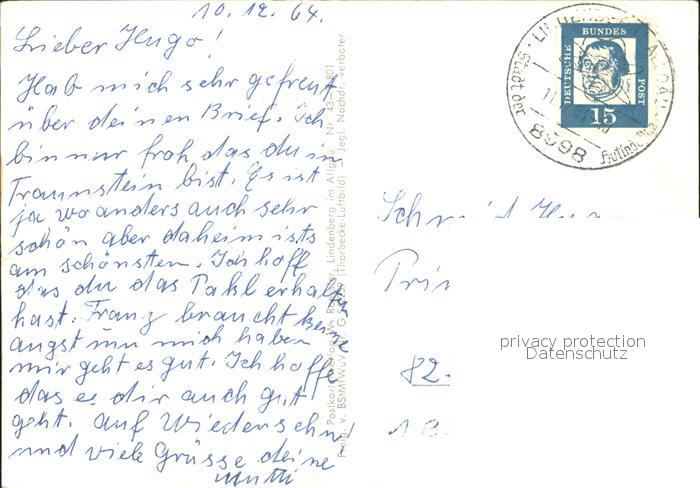 10.12.64.
Lieber Hugo!
Hab mich sehr gefreut
über deinen Brief. Ich
bin nur froh das du in
Traunstein bist. Es ist
ja woanders auch sehr
schön aber daheim ists
am schönsten. Ich hoff
das du das Pakl erhalten
hast. Franz braucht keine
angst um mich haben
mir geht es gut. Ich hoffe
das es dir auch gut
geht. auf Wiedersehn!
und viele Grüsse deine
Mutti
Lindenberg im Allgäu
Nr. 43
801
(Thorbecke-Luftbild)
Jegl. Nachdr. verboten
DEUTSCHE
BUNDES
POST
15
Stadt der
8998
82
privacy protection
Datenschutz